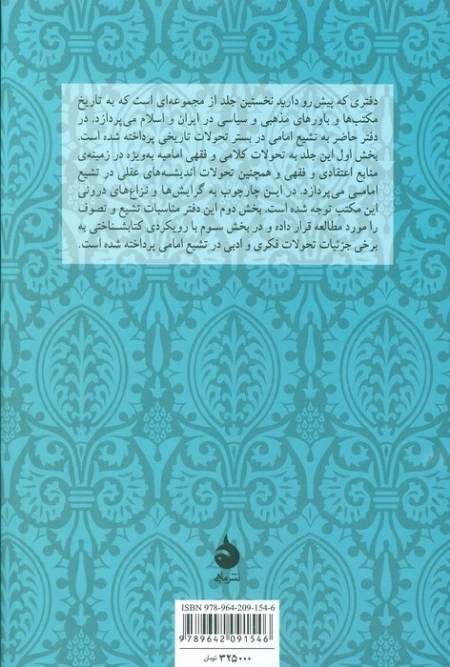 دفتری که پیش‌رو دارید نخستین جلد از مجموعه‌ای است که به تاریخ
مکتب‌ها و باورهای مذهبی و سیاسی در ایران و اسلام می‌پردازد. در
دفتر حاضر به تشیع امامی در بستر تحولات تاریخی پرداخته شده است.
بخش اول این جلد به تحولات کلامی و فقهی امامیه به‌ویژه در زمینه‌ی
منابع اعتقادی و فقهی و همچنین تحولات اندیشه‌های عقلی در تشیع
امامی می‌پردازد. در این چارچوب به گرایش‌ها و نزاع‌های درونی
این مکتب توجه شده است. بخش دوم این دفتر مناسبات تشیع و تصوف
را مورد مطالعه قرار داده و در بخش سوم با رویکردی کتابشناختی به
برخی جزئیات تحولات فکری و ادبی در تشیع امامی پرداخته شده است.
نشر ماهی
ISBN 978-964-209-154-6
9 789642 091546
۳۲۵۰۰۰ تومان